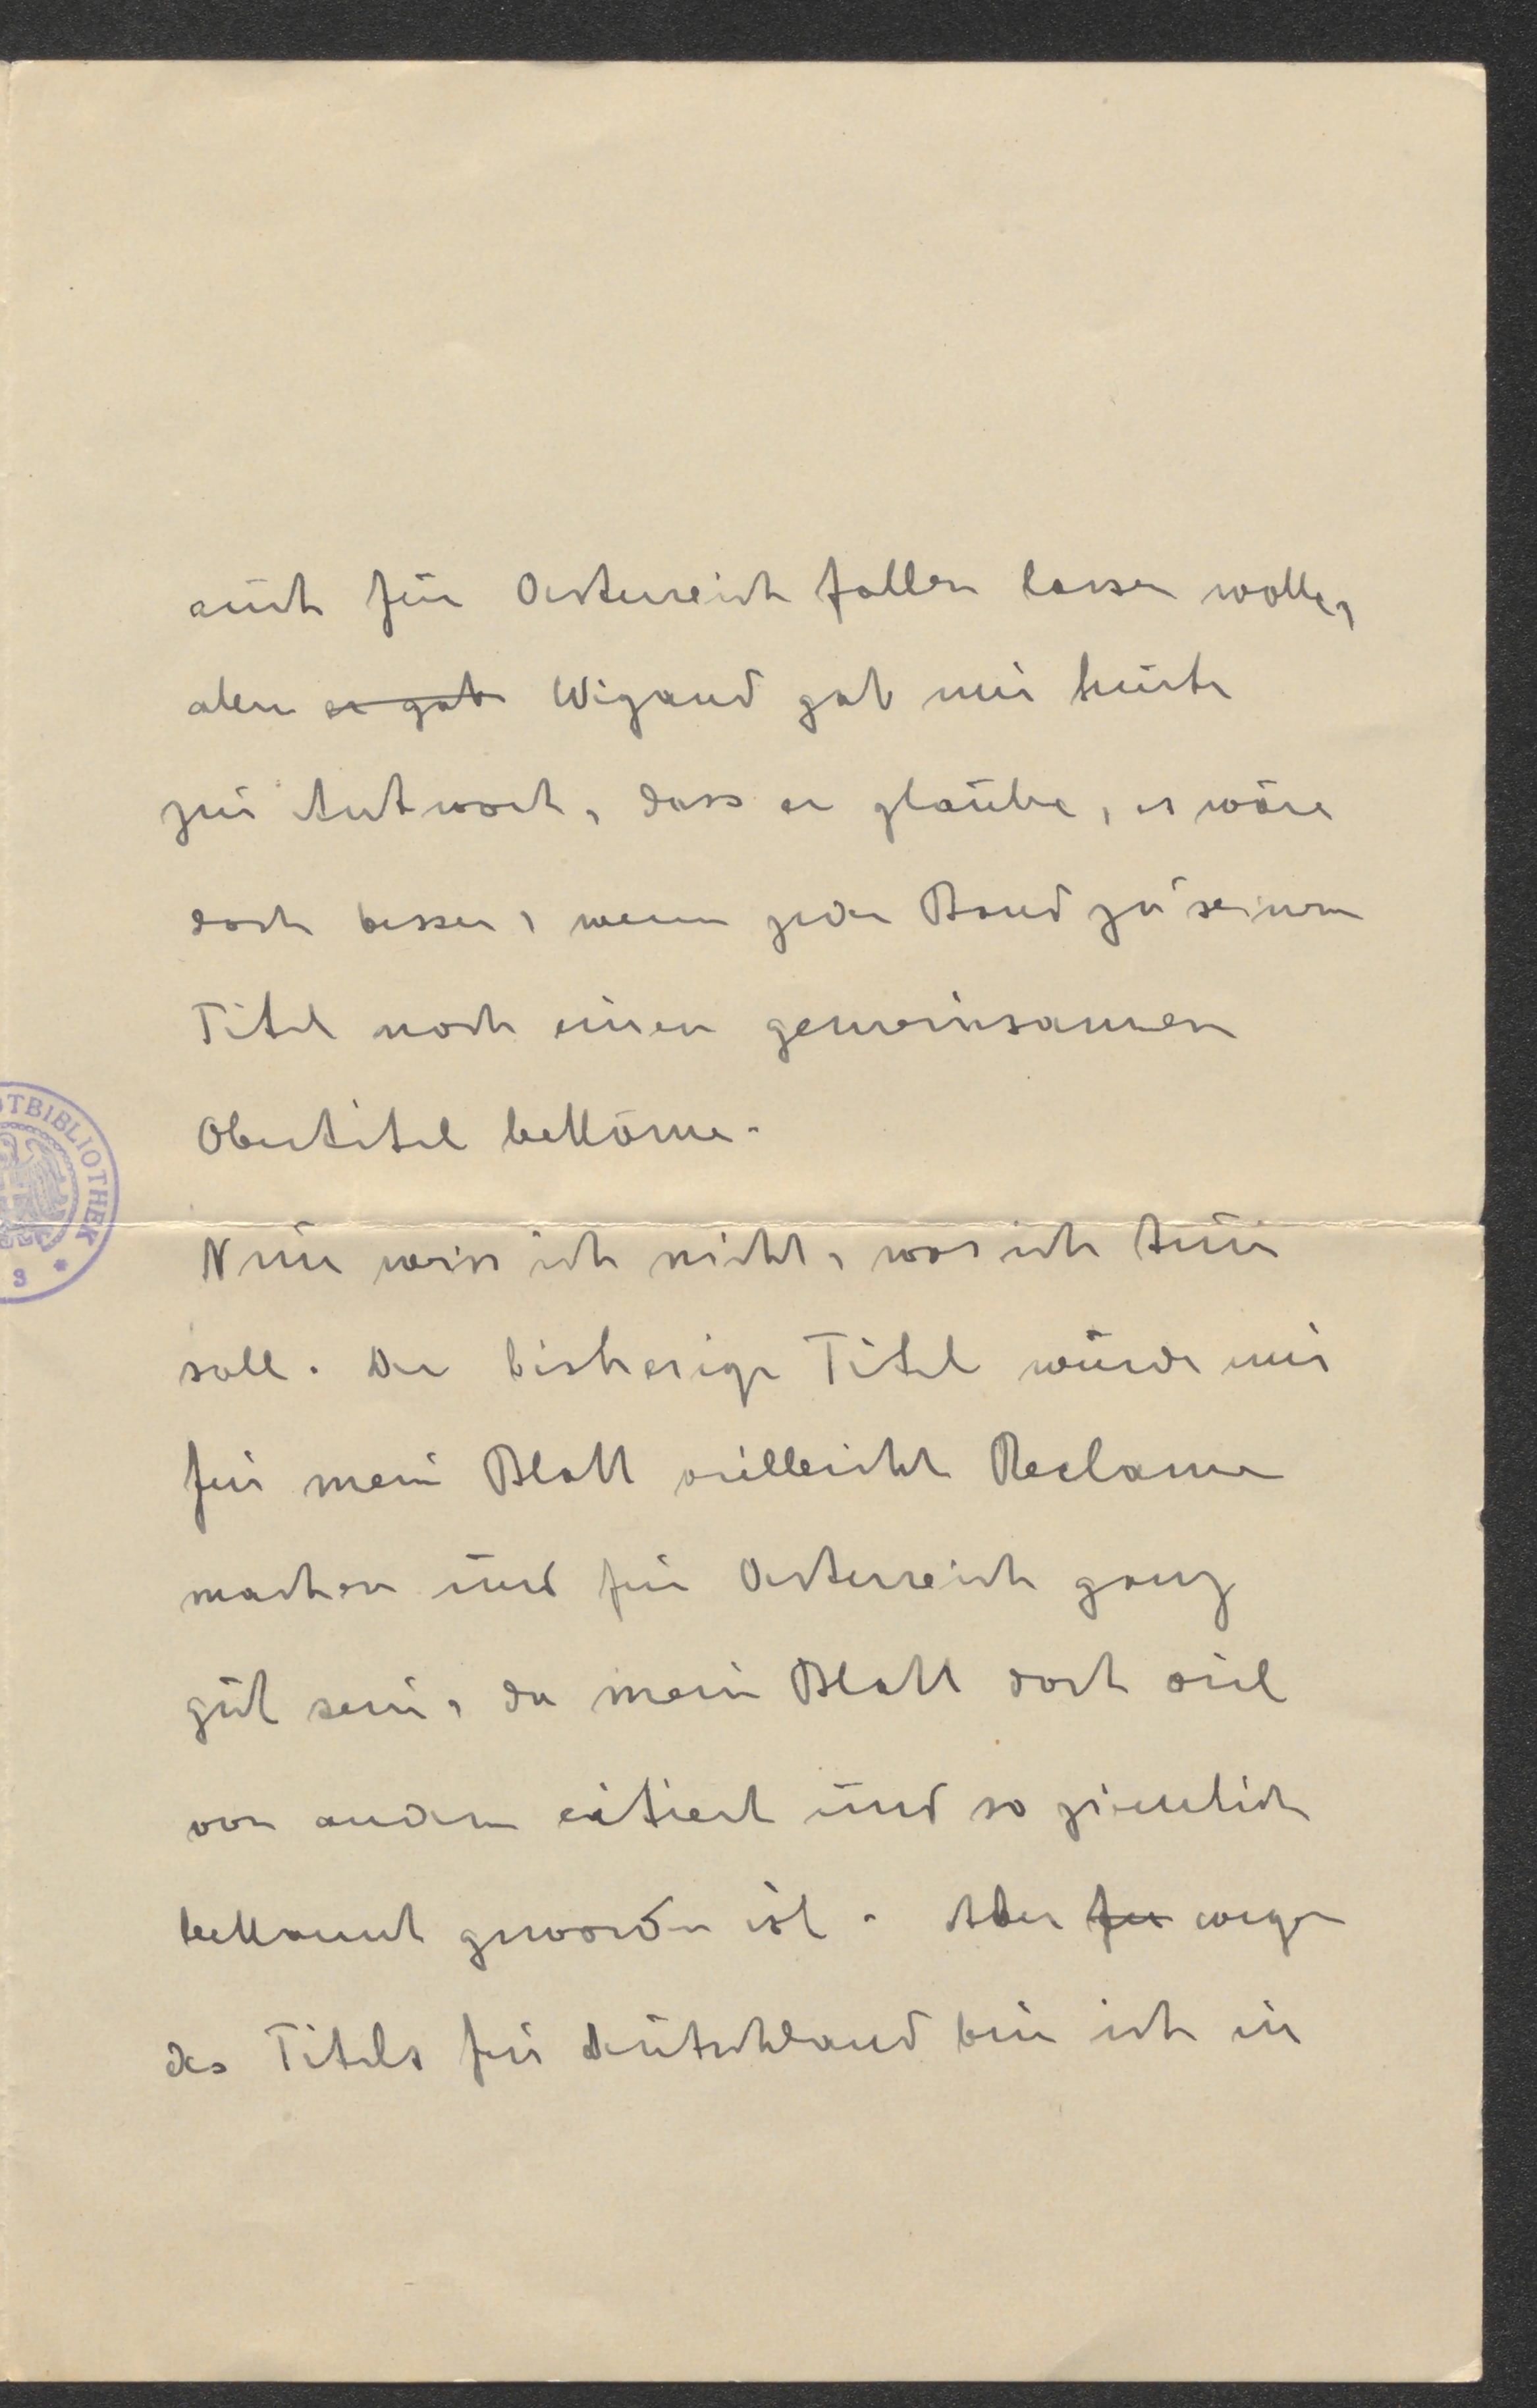 auch für Oesterreich fallen lassen wolle,
aber er gab Wigand gab mir heute
zur Antwort, dass er glaube, es wäre
doch besser, wenn jeder Band zu seinem
Titel noch einen gemeinsamen
Obertitel bekäme.
Nun weiss ich nicht, was ich tun
soll. Der bisherige Titel würde mir
für mein Blatt vielleicht Reclame
machen und für Oesterreich ganz
gut sein, da mein Blatt dort viel
von andern citiert und so ziemlich
bekannt geworden ist. Aber für wegen
des Titels für Deutschland bin ich in
OTBIBLIOTHEK